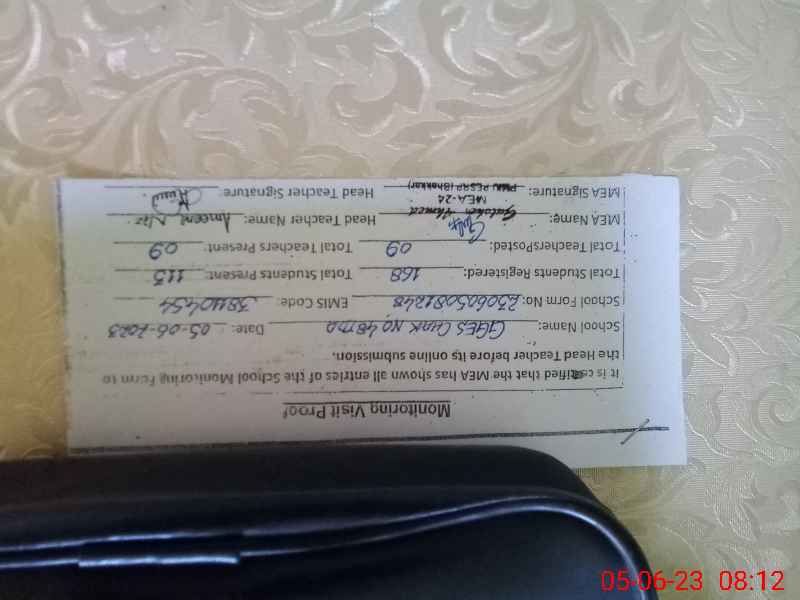 Monitoring Visit Proof
it is certified that the MEA has shown all entries of the School Monitoring Form to
the Head Teacher before its online submission.
School Name: GGES CHAK NO 48 TDA Date: 05-06-2023
School Form No: 230605081248 EMIS Code: 38140454
Total Students Registered: 168 Total Students Present: 115
Total TeachersPosted: 09 Total Teachers Present: 09
MEA Name: Ahmed Head Teacher Name:
MEA Signature: MEA-24 Head Teacher Signature:
PESRP (Bhakkar)
05-06-23 08:12